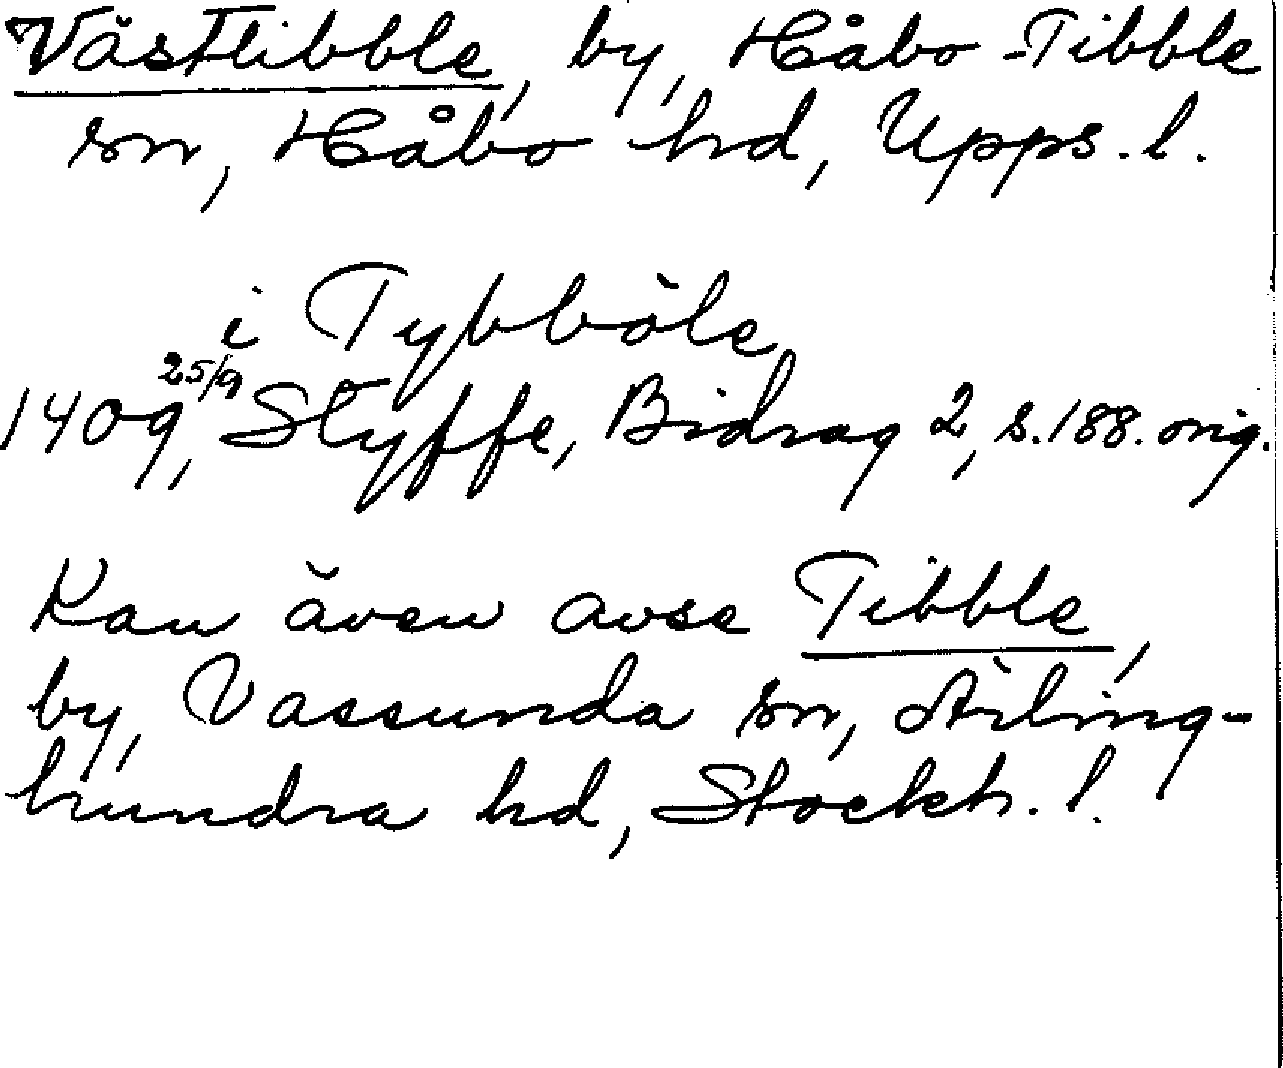 Västtibble, by, Håbo-Tibble
sn, Håbo hd, Upps. l.
i Tybböle
1409 25/9, Styffe, Bidrag 2, s. 188. orig.
Kan även avse Tibble,
by, Vassunda sn, Ärling-
hundra hd, Stockh. l.